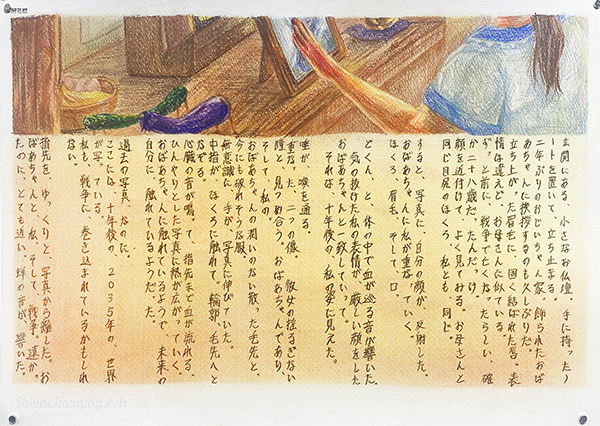 玄関にある、小さなお仏壇。手に持ったノ
ートを置いて、立ち止まる。
二年ぶりのおじいちゃん家。飾られたおば
あちゃんに挨拶するのも久しぶりだ。
立ち上がった眉毛に、固く結ばれた口。表
情は違えど、お母さんに似ている。
ずっと前に、戦争で亡くなったらしい。確
か二十八歳だったんだっけ。
顔を近付けて、よく見てみる。お母さんと
同じ目尻のほくろ。私とも、同じ。
すると、写真に、自分の顔が反射した。
おばあちゃんに私が重なっていく。
ほくろ、眉毛、そして、口。
どくん、と、体の中で血が巡る音が響いた。
気の抜けた私の表情が、厳しい顔をした
おばあちゃんと一致していって。
それは、十年後の、私の姿に見えた。
唾が、喉を通る。
重なった二つの像。彼女の揺るぎない
瞳と見つめ合う。おばあちゃんであり、
そして、私の。
おばあちゃんの潤いのない散った毛先と、
今にも破れそうな服。
無意識に、手が、写真に伸びていた。
中指が、ほくろに触れて、輪郭、毛先へと
なぞる。
心臓の音が鳴って、指先まで血が流れる。
ひんやりとした写真に熱が広がっていく。
おばあちゃんに触れているようで、未来の
自分に、触れているようだった。
過去の写真、なのに。
ここには、十年後の、2035年の、世界
が写っている。
私も、戦争に、巻き込まれているかもしれ
ない。
指先を、ゆっくりと、写真から離した。お
ばあちゃんと、私、そして、戦争。遥か
たのに、とても近い。蝉の音が、響いた。
Shinbi Imaging Arts